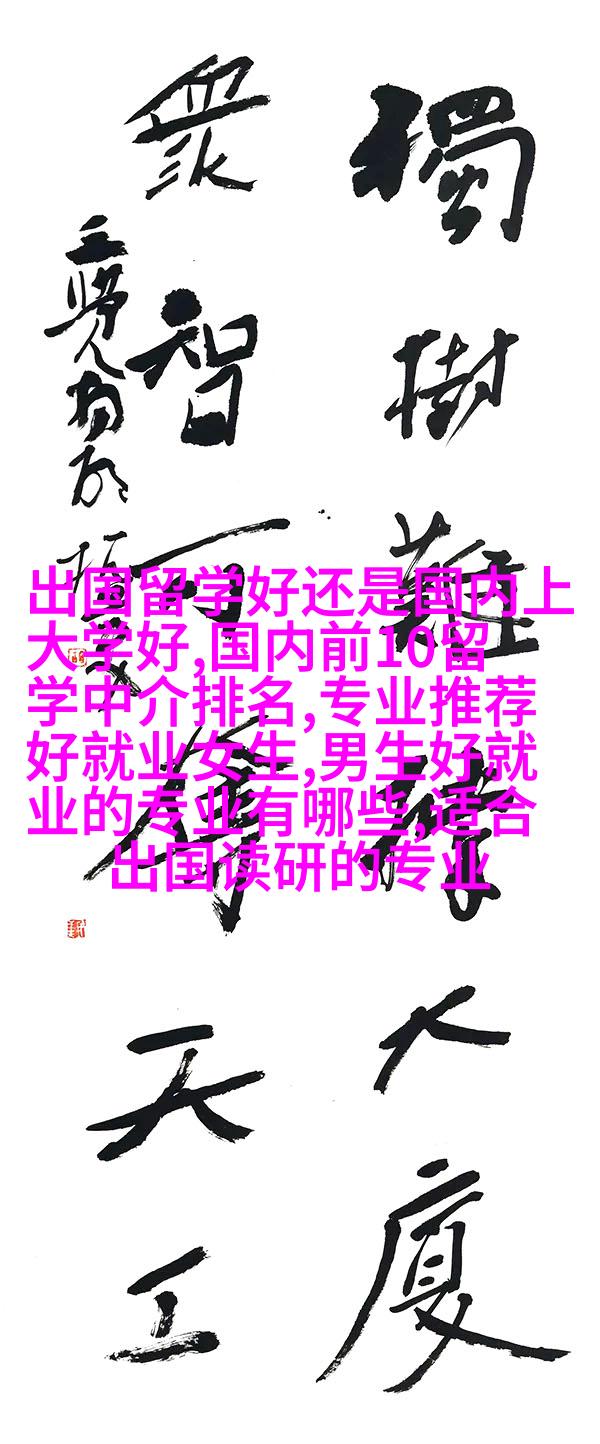 獨樹難撐大廈
衆智可奪天工
出国留学好还是国内上
大学好,国内前10留
学中介排名,专业推荐
好就业女生,男生好就
业的专业有哪些,适合
出国读研的专业